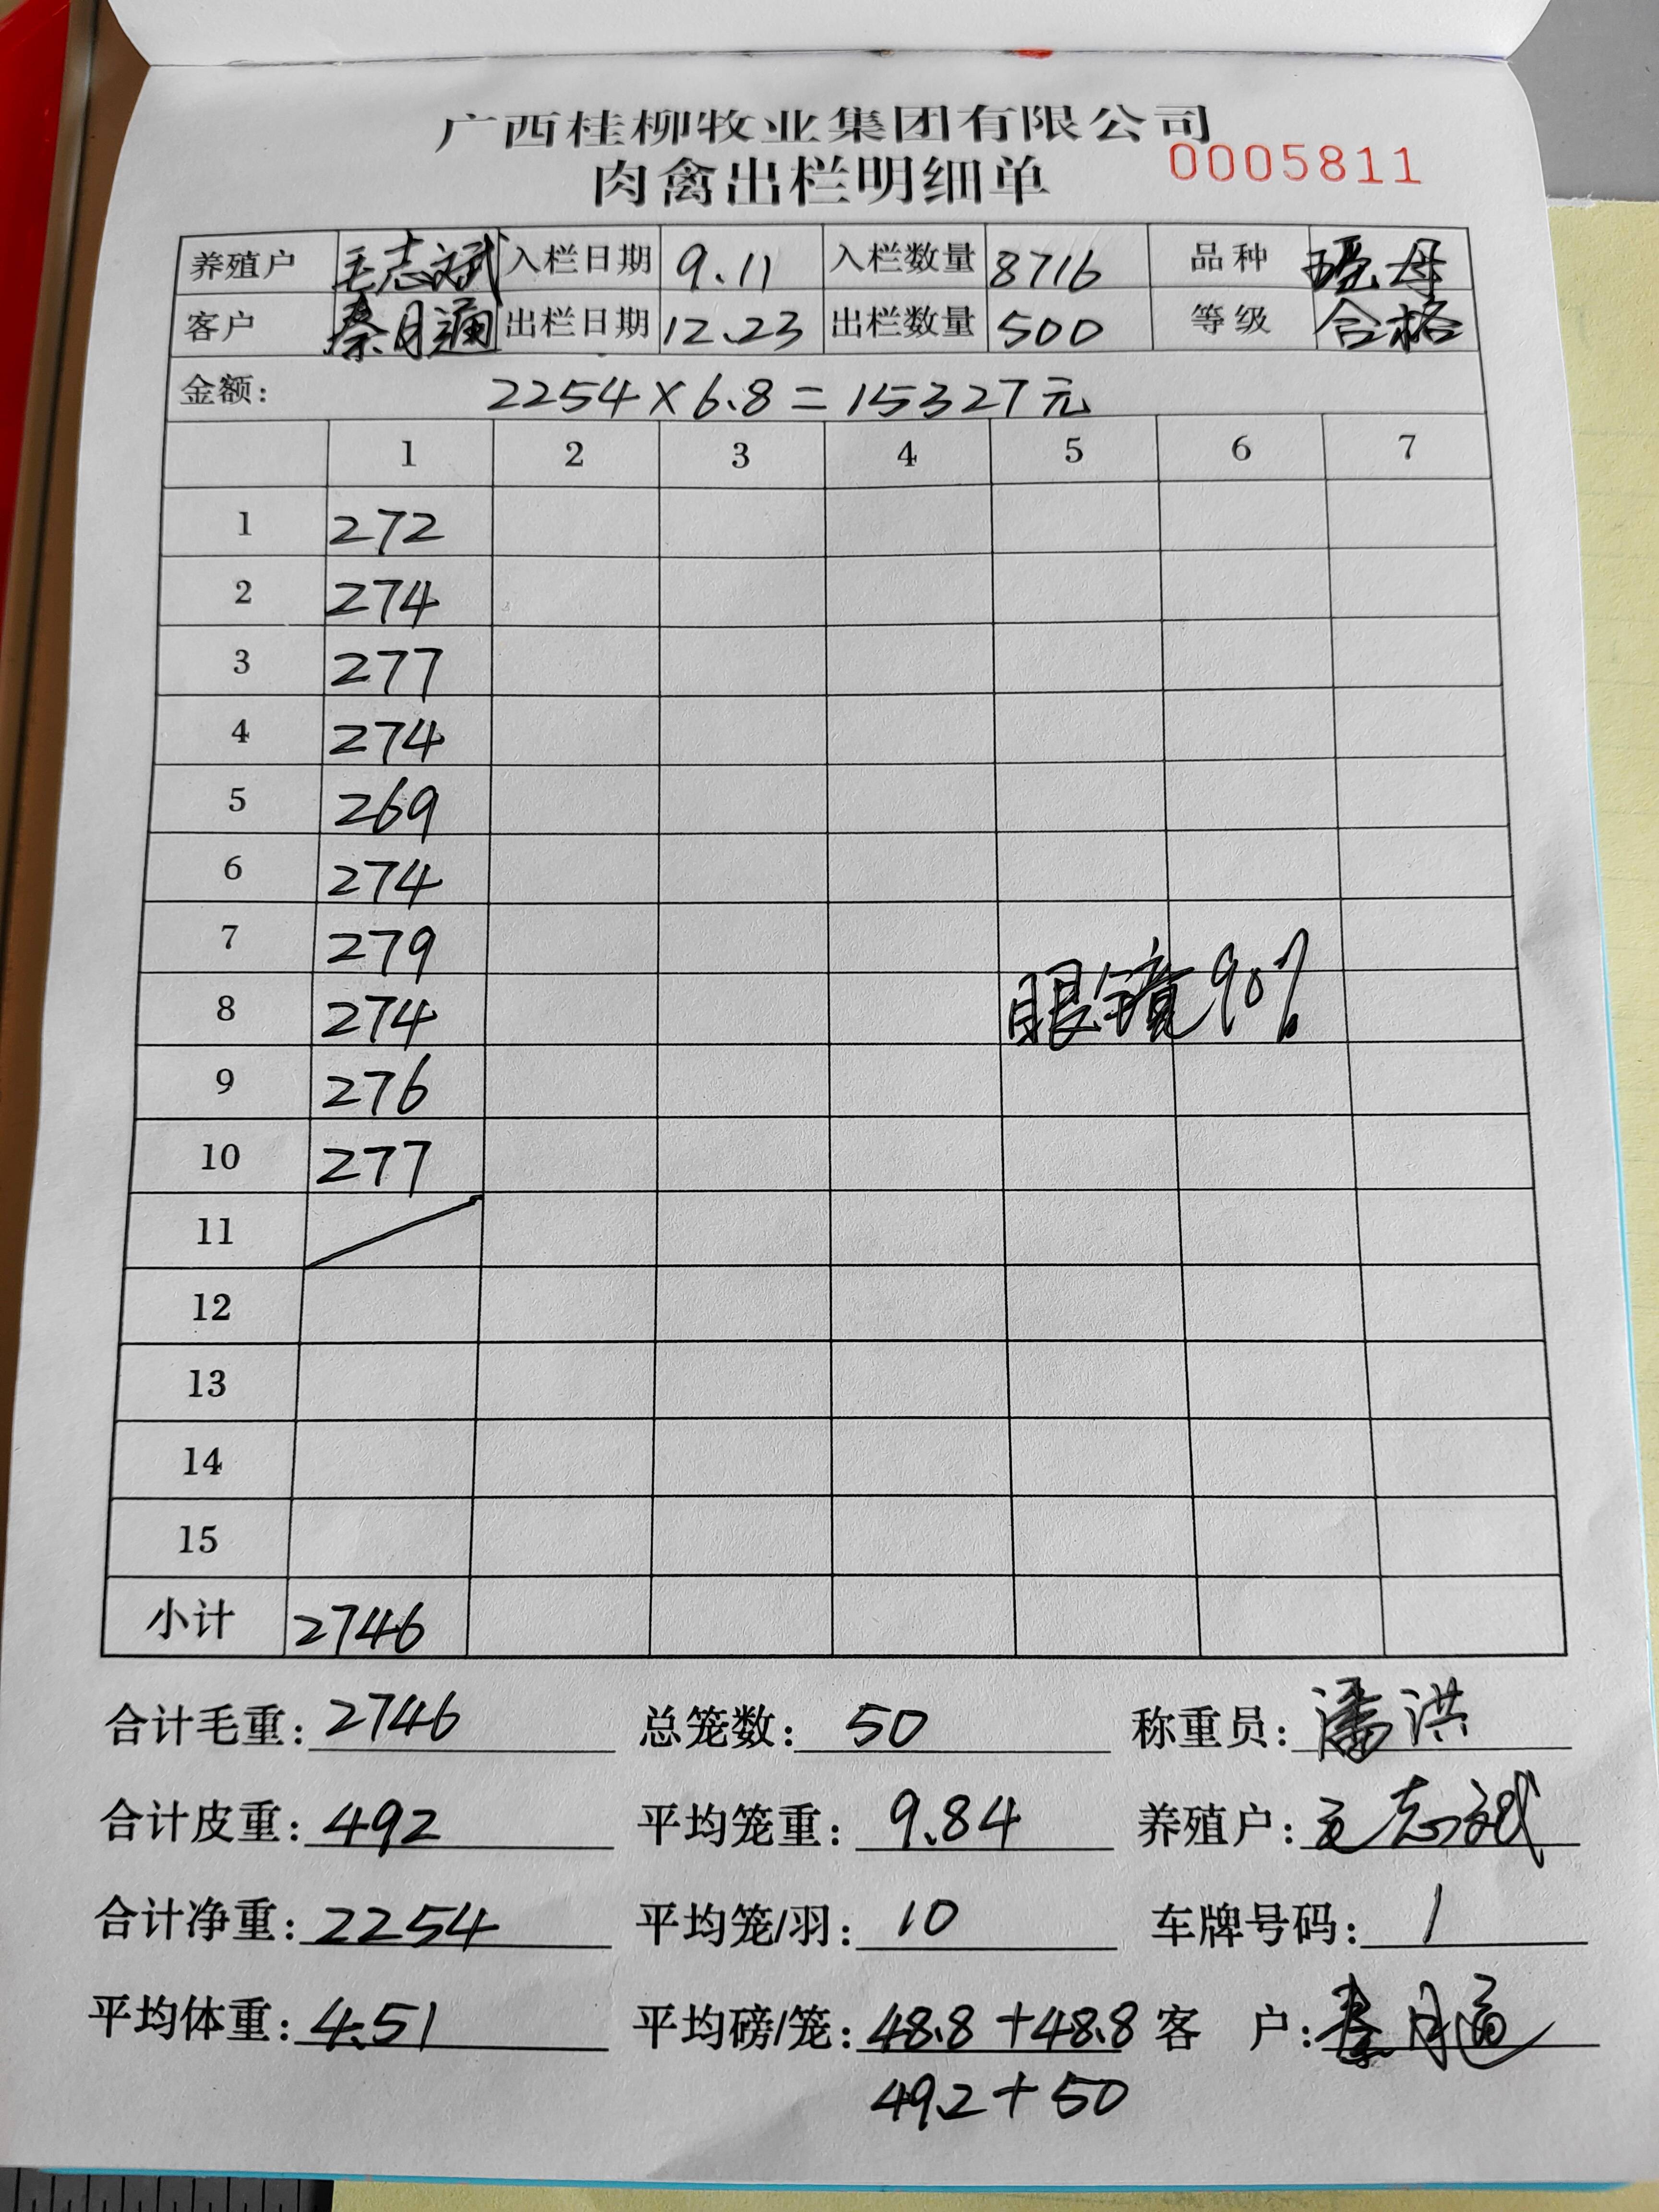 广西桂柳牧业集团有限公司
肉禽出栏明细单 0005811
养殖户 毛志斌 入栏日期 9.11 入栏数量 8716 品种 母
客户 秦月通 出栏日期 12.23 出栏数量 500 等级 合格
金额: 2254×6.8=15327元
1 2 3 4 5 6 7
1 272
2 274
3 277
4 274
5 269
6 274
7 279
8 274 眼镜90%
9 276
10 277
11
12
13
14
15
小计 2746
合计毛重: 2746 总笼数: 50 称重员: 潘洪
合计皮重: 492 平均笼重: 9.84 养殖户: 毛志斌
合计净重: 2254 平均笼/羽: 10 车牌号码: /
平均体重: 4.51 平均磅/笼: 48.8+48.8 客 户: 秦月通
49.2+50